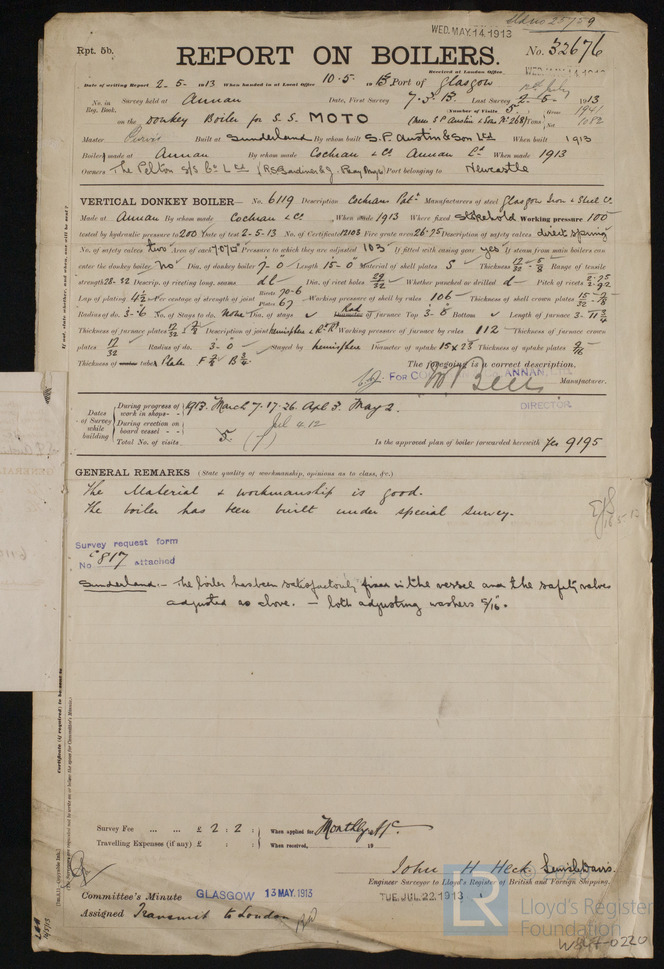 WED. MAY 14. 1913
Rpt. 5b.
REPORT ON BOILERS.
No. 32676
Received at London Office WED. MAY 14 1913
Date of writing Report 2-5-1913 When handed in at Local Office 10.5.1913 Port of Glasgow
No. in Reg. Book. Survey held at Annan Date, First Survey 7.3.13. Last Survey 2-5-1913
(Number of Visits 5.)
on the Donkey Boiler for S.S. MOTO (Messrs S P Austin & Sons No 268) Tons
Master Built at Sunderland By whom built S.P. Austin & Son Ltd When built 1913
Boiler made at Annan By whom made Cochran & Co Annan Ld When made 1913
Owners The Pelton S/S Co Ltd Port belonging to Newcastle
VERTICAL DONKEY BOILER— No. 6119 Description Cochran Pat. Manufacturers of steel Glasgow Iron & Steel Co
Made at Annan By whom made Cochran & Co When made 1913 Where fixed Stokehold Working pressure 100
tested by hydraulic pressure to 200 Date of test 2-5-13 No. of Certificate 12103 Fire grate area 26.75 Description of safety valves direct spring
No. of safety valves two Area of each 7.07 Pressure to which they are adjusted 103 If fitted with easing gear yes If steam from main boilers can
enter the donkey boiler no Dia. of donkey boiler 7-0 Length 15-0 Material of shell plates S Thickness 17/32 - 5/8 Range of tensile
strength 28-32 Descrip. of riveting long. seams dl Dia. of rivet holes 29/32 Whether punched or drilled d Pitch of rivets 2.75 2.92
Lap of plating 4 1/2 Per centage of strength of joint Rivets 70.6 Plates 67 Working pressure of shell by rules 106 Thickness of shell crown plates 15/32
Radius of do. 3-6 No. of Stays to do. None Dia. of stays Rad of furnace Top 3-8 Bottom Length of furnace 3-11 3/4
Thickness of furnace plates 17/32 Description of joint Working pressure of furnace by rules 112 Thickness of furnace crown
plates 17/32 Radius of do. 3-0 Stayed by hemisphere Diameter of uptake 15 x 23 Thickness of uptake plates 9/16
Thickness of water tubes Plate F 3/4 B 3/4
The foregoing is a correct description,
FOR ANNAN, Manufacturer.
DIRECTOR.
Dates of Survey while building
During progress of work in shops - - 1913. March 7.17.26. Apl 3. May 2.
During erection on board vessel - - - Jul 4.12
Total No. of visits 5.
Is the approved plan of boiler forwarded herewith Yes 9195
GENERAL REMARKS (State quality of workmanship, opinions as to class, &c.)
The Material & workmanship is good.
The boiler has been built under special survey.
Survey request form
No. C 817 attached
Sunderland.— The boiler has been satisfactorily fixed in the vessel and the safety valves
adjusted as above. — both adjusting washers 5/16".
Survey Fee ... ... £ 2 : 2 : When applied for, Monthly A/c.
Travelling Expenses (if any) £ : : When received, 19
John H Heck Lewis Davis.
Engineer Surveyor to Lloyd's Register of British and Foreign Shipping.
Committee's Minute GLASGOW 13 MAY. 1913 TUE. JUL. 22. 1913
Assigned Transmit to London
LR
Lloyd's Register
Foundation
W847-0220